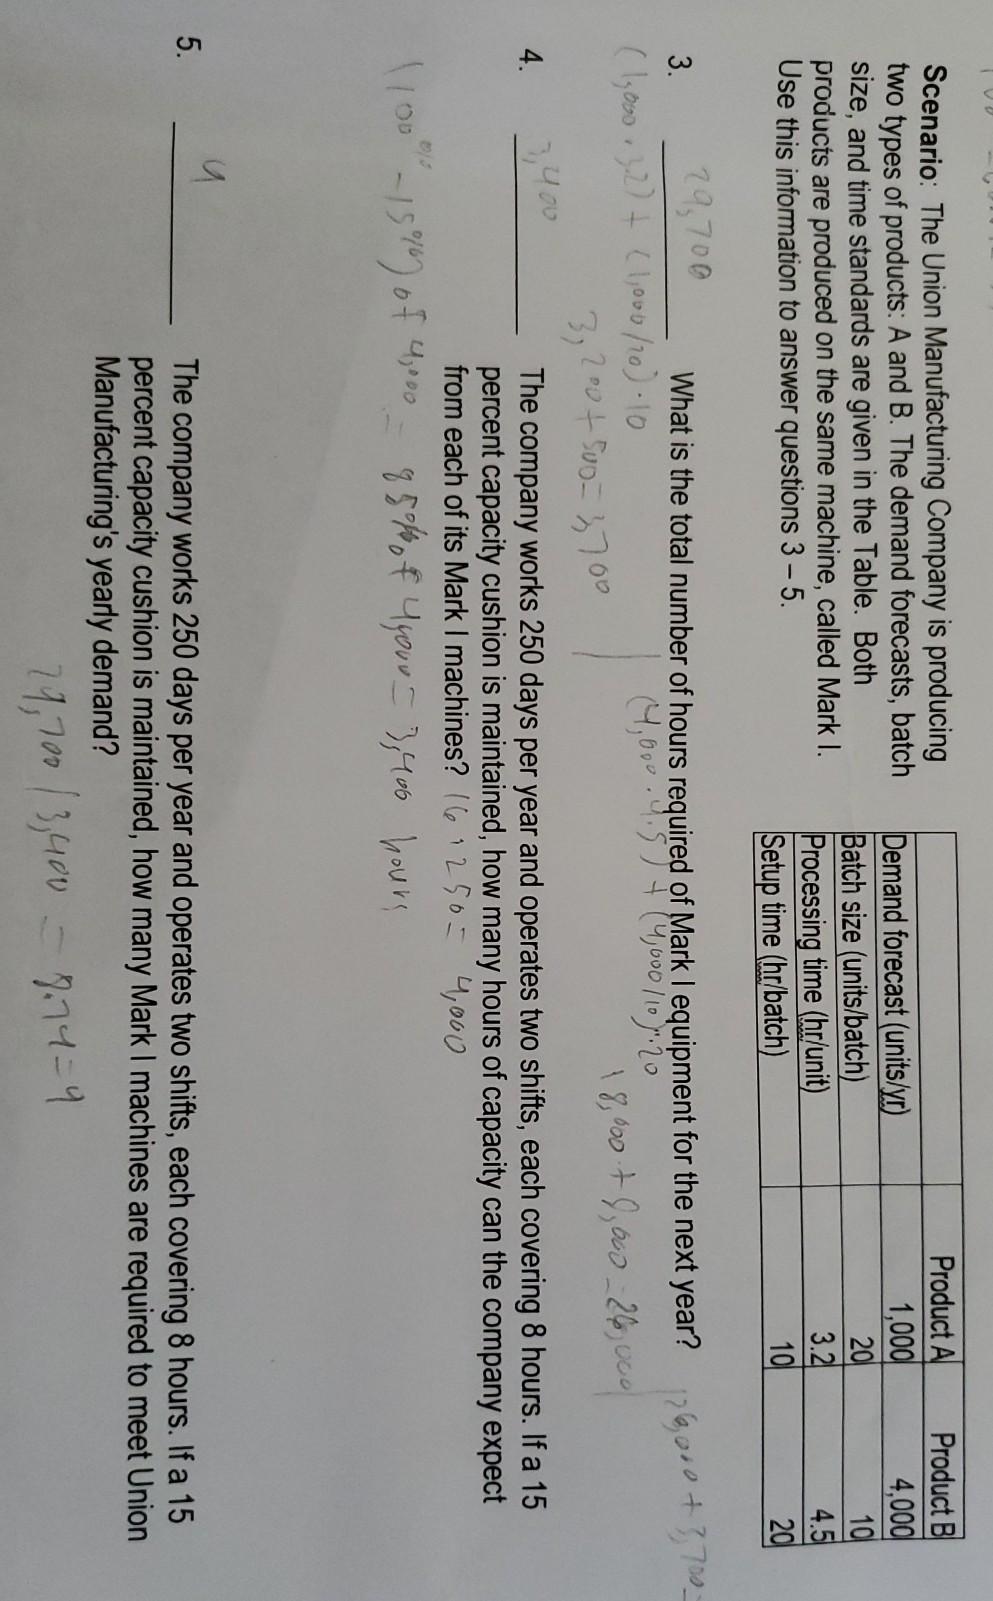 Scenario: The Union Manufacturing Company is producing
two types of products: A and B. The demand forecasts, batch
size, and time standards are given in the Table. Both
products are produced on the same machine, called Mark I.
Use this information to answer questions 3 – 5.
Product A Product B
Demand forecast (units/yr) 1,000 4,000
Batch size (units/batch) 20 10
Processing time (hr/unit) 3.2 4.5
Setup time (hr/batch) 10 20
3. 29,700 What is the total number of hours required of Mark I equipment for the next year?
(1,000 · 3.2) + (1,000/20) · 10
3,200 + 500 = 3,700
(4,000 · 4.5) + (4,000/10) · 20
18,000 + 8,000 = 26,000
26,000 + 3,700 =
4. 3,400 The company works 250 days per year and operates two shifts, each covering 8 hours. If a 15
percent capacity cushion is maintained, how many hours of capacity can the company expect
from each of its Mark I machines? 16 · 250 = 4,000
(100% - 15%) of 4,000 = 85% of 4,000 = 3,400 hours
5. 9 The company works 250 days per year and operates two shifts, each covering 8 hours. If a 15
percent capacity cushion is maintained, how many Mark I machines are required to meet Union
Manufacturing's yearly demand?
29,700 / 3,400 = 8.74 = 9